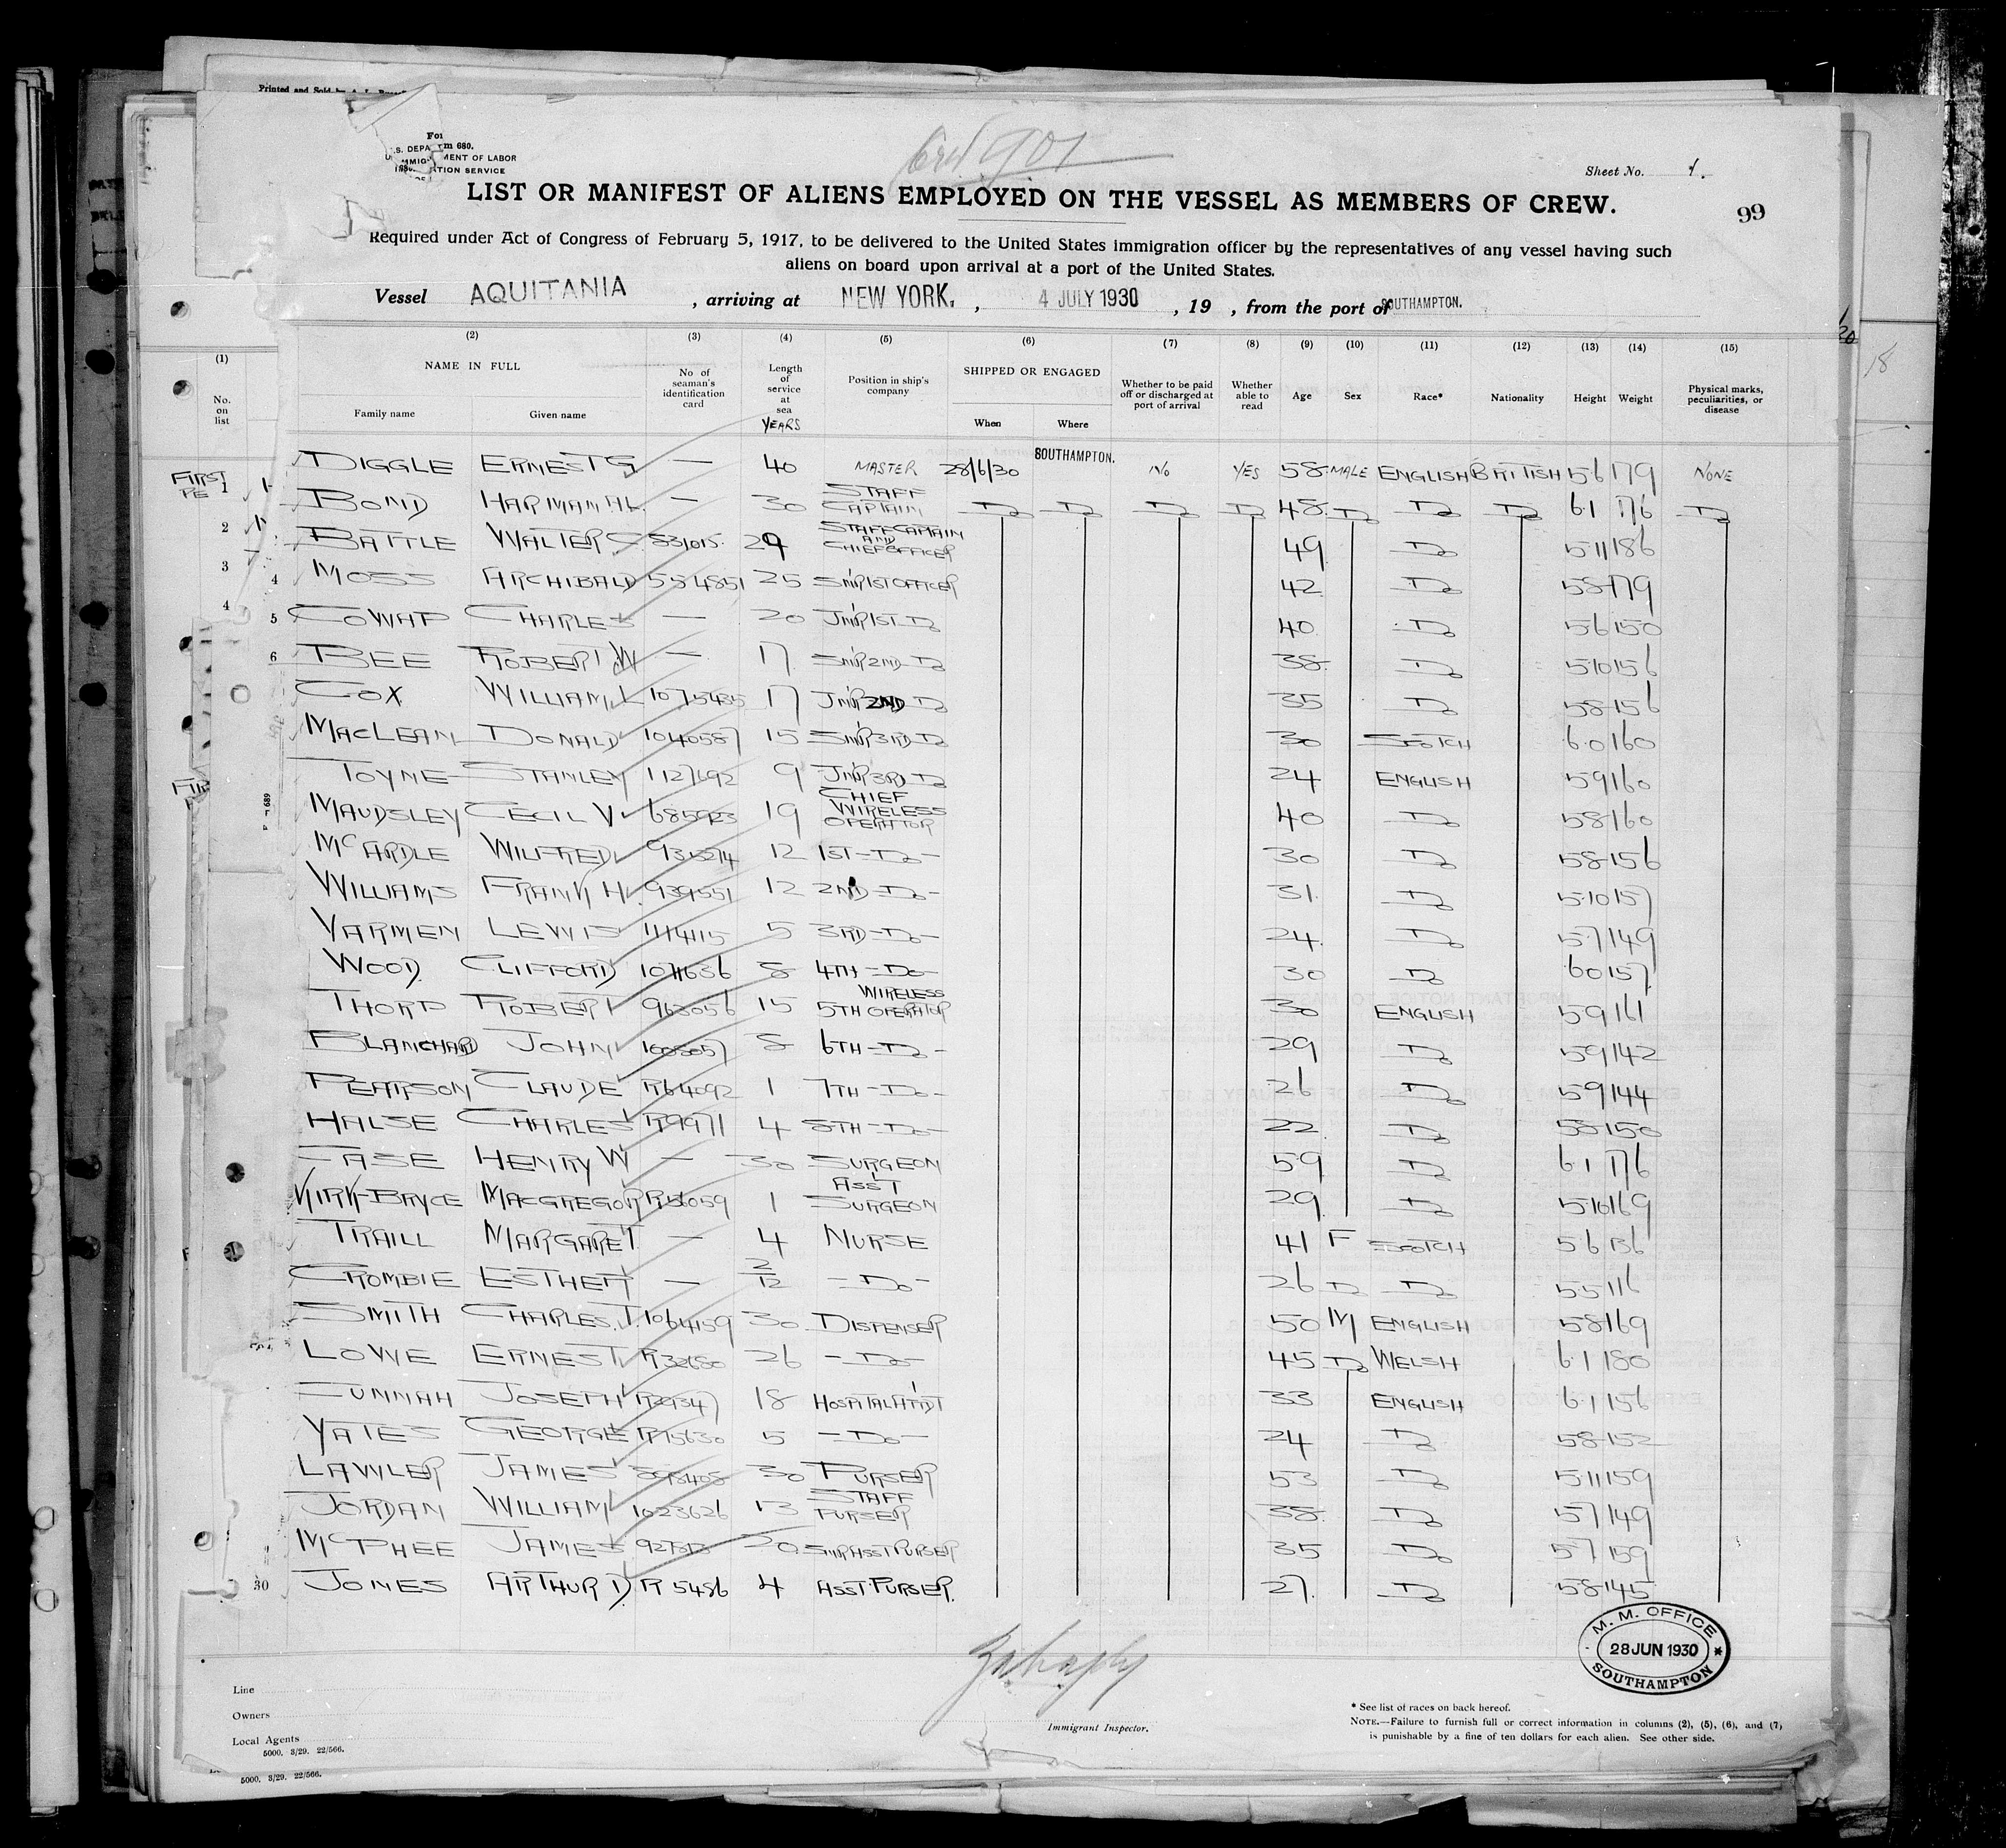 Printed and Sold by
Form 680.
U.S. DEPARTMENT OF LABOR
IMMIGRATION SERVICE
Sheet No. 1.
LIST OR MANIFEST OF ALIENS EMPLOYED ON THE VESSEL AS MEMBERS OF CREW.
99
Required under Act of Congress of February 5, 1917, to be delivered to the United States immigration officer by the representatives of any vessel having such
aliens on board upon arrival at a port of the United States.
Vessel AQUITANIA , arriving at NEW YORK. , 4 JULY 1930 , 19 , from the port of SOUTHAMPTON.
(1) (2) (3) (4) (5) (6) (7) (8) (9) (10) (11) (12) (13) (14) (15)
No. on list NAME IN FULL Family name Given name No. of seaman's identification card Length of service at sea YEARS Position in ship's company SHIPPED OR ENGAGED When Where Whether to be paid off or discharged at port of arrival Whether able to read Age Sex Race* Nationality Height Weight Physical marks, peculiarities, or disease
DIGGLE ERNEST G — 40 MASTER 28/6/30 SOUTHAMPTON. NO YES 58 MALE ENGLISH BRITISH 5·6 179 NONE
BOND HARMAN H. — 30 STAFF CAPTAIN Do Do Do Do 48 Do Do Do 6·1 176 Do
BATTLE WALTER C 531015 29 STAFF CAPTAIN AND CHIEF OFFICER 49 Do 5·11 186
MOSS ARCHIBALD 554851 25 SNR 1ST OFFICER 42 Do 5·8 179
COWAP CHARLES — 20 JNR 1ST Do 40 Do 5·6 150
BEE ROBERT W — 17 SNR 2ND Do 38 Do 5·10 156
COX WILLIAM L 1075435 17 JNR 2ND Do 35 Do 5·8 156
MACLEAN DONALD 1040587 15 SNR 3RD Do 30 SCOTCH 6·0 160
TOYNE STANLEY 1127692 9 JNR 3RD Do 24 ENGLISH 5·9 160
MAUDSLEY CECIL V 685923 19 CHIEF WIRELESS OPERATOR 40 Do 5·8 160
McARDLE WILFRED 935274 12 1ST - Do - 30 Do 5·8 156
WILLIAMS FRANK H. 939551 12 2ND - Do - 31 Do 5·10 157
YARMEN LEWIS 1114115 5 3RD - Do - 24 Do 5·7 149
WOOD CLIFFORD 1071636 8 4TH - Do - 30 Do 6·0 157
THORP ROBERT 963056 15 5TH WIRELESS OPERATOR 30 ENGLISH 5·9 161
BLANCHARD JOHN 1008057 8 6TH - Do - 29 Do 5·9 142
PEARSON CLAUDE R64092 1 7TH - Do - 26 Do 5·9 144
HALSE CHARLES R9971 4 8TH - Do - 22 Do 5·8 150
HENRY W — 30 SURGEON 59 Do 6·1 176
KIRK-BRYCE MACGREGOR R56059 1 ASS'T SURGEON 29 Do 5·10 169
TRAILL MARGARET — 4 NURSE 41 F SCOTCH 5·6 136
CROMBIE ESTHER — 2/12 - Do - 26 Do Do 5·5 116
SMITH CHARLES. T. 1064159 30 DISPENSER 50 M ENGLISH 5·8 169
LOWE ERNEST R32680 26 - Do - 45 Do WELSH 6·1 180
CUNNAH JOSEPH R29347 18 HOSPITAL ATT'DT 33 ENGLISH 6·1 156
YATES GEORGE R15630 5 - Do - 24 Do 5·8 152
LAWLER JAMES 30 PURSER 53 Do 5·11 159
JORDAN WILLIAM 1023626 13 STAFF PURSER 38 Do 5·7 149
McPHEE JAMES 20 SNR ASST PURSER 35 Do 5·7 159
30 JONES ARTHUR D. R 5486 4 ASST. PURSER. 27 Do 5·8 145
M. M. OFFICE
28 JUN 1930
SOUTHAMPTON
Line
Owners
Local Agents
5000. 3/29. 22/566.
Immigrant Inspector.
* See list of races on back hereof.
NOTE.—Failure to furnish full or correct information in columns (2), (5), (6), and (7), is punishable by a fine of ten dollars for each alien. See other side.
5000. 3/29. 22/566.